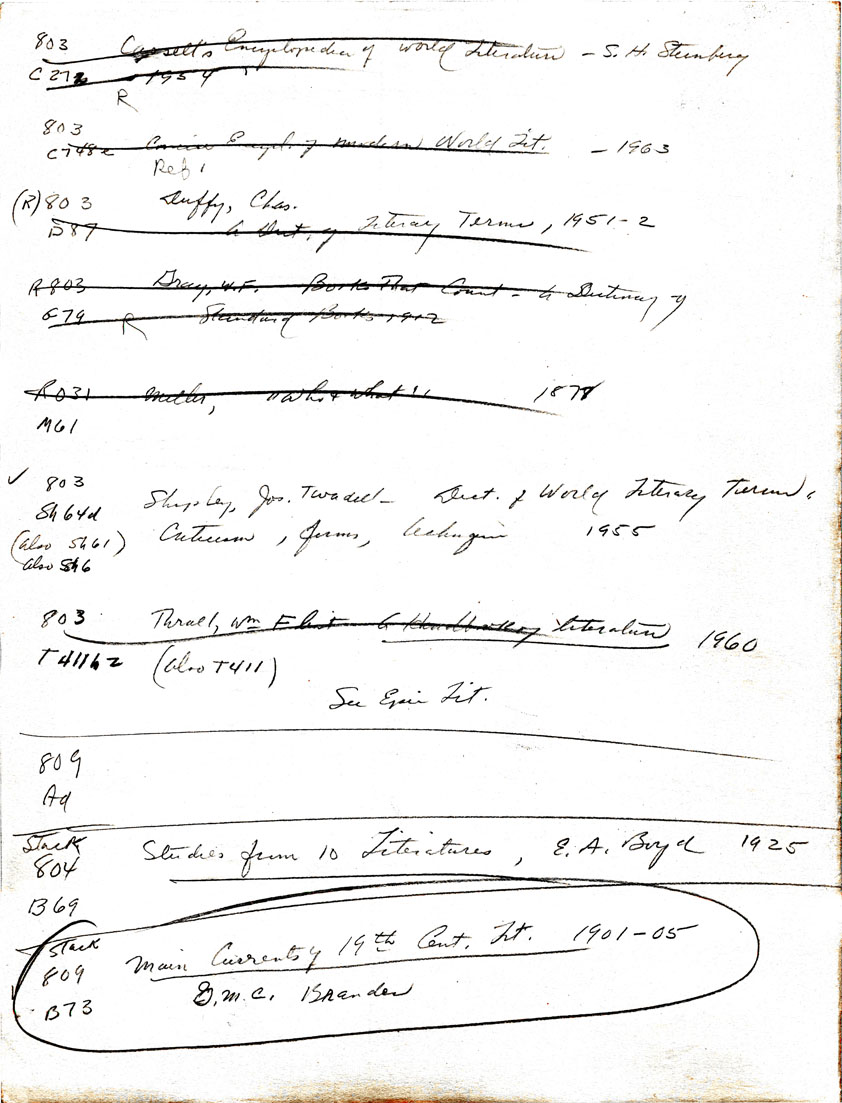 803 Cassell's Encyclopedia of World Literature - S. H. Steinberg
C272 - 1954
R
803
C748e Concise Encycl. of Modern World Lit. - 1963
Ref.
(R) 803 Duffy, Chas.
D87 A Dict. of Literary Terms, 1951-2
R803 Gray, W.F. Books That Count - A Dictionary of
G79 R Standard Books 1912
R031 Miller, "Who & What" 1878
M61
✓ 803
Sh64d Shipley, Jos. Twadell - Dict. of World Literary Terms,
(also Sh61) Criticism, forms, technique 1955
also Sh6
803 Thrall, Wm Flint A Handbook of Literature 1960
T411h2 (also T411)
See Epic Lit.
809
Ad
Stack
804 Studies from 10 Literatures, E. A. Boyd 1925
B69
Stack
809 Main Currents of 19th Cent. Lit. 1901-05
B73 G.M.C. Brandes